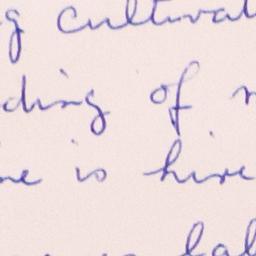 g cultivat
ding of
ne is hire